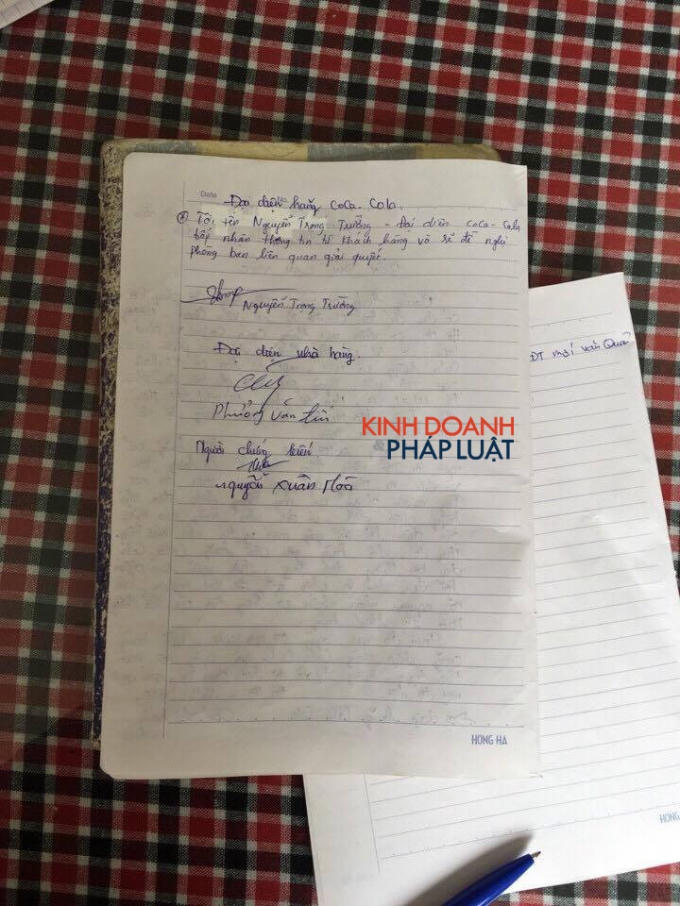 Date
Đại diện hãng CoCa-Cola.
Tôi tên Nguyễn Trọng Trưởng - Đại diện CoCa-Cola
tiếp nhận thông tin từ khách hàng và sẽ đề nghị
phòng ban liên quan giải quyết.
Nguyễn Trọng Trưởng
Đại diện nhà hàng
Phường Văn
KINH DOANH
PHÁP LUẬT
Người chứng kiến
Nguyễn Xuân
HONG HA
ĐT mới Văn Quán
HONG